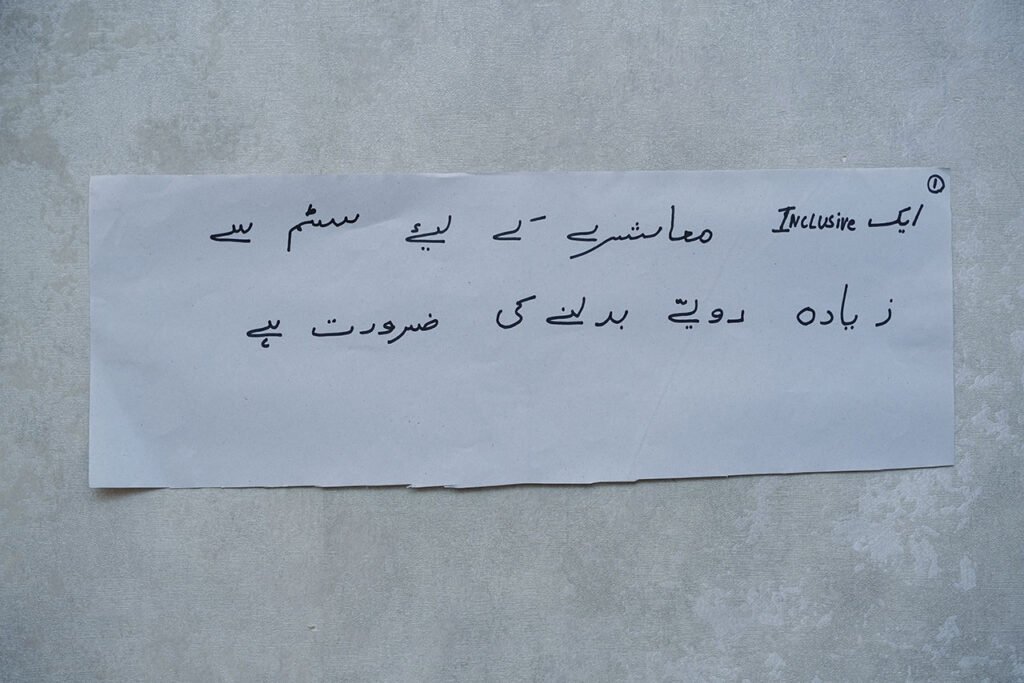 ①
ایک Inclusive معاشرے کے لیئے سسٹم سے
زیادہ رویے بدلنے کی ضرورت ہے